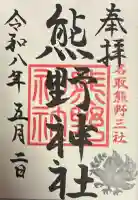 奉拝
名取熊野三社
熊野神社
熊野神社
令和八年五月二日